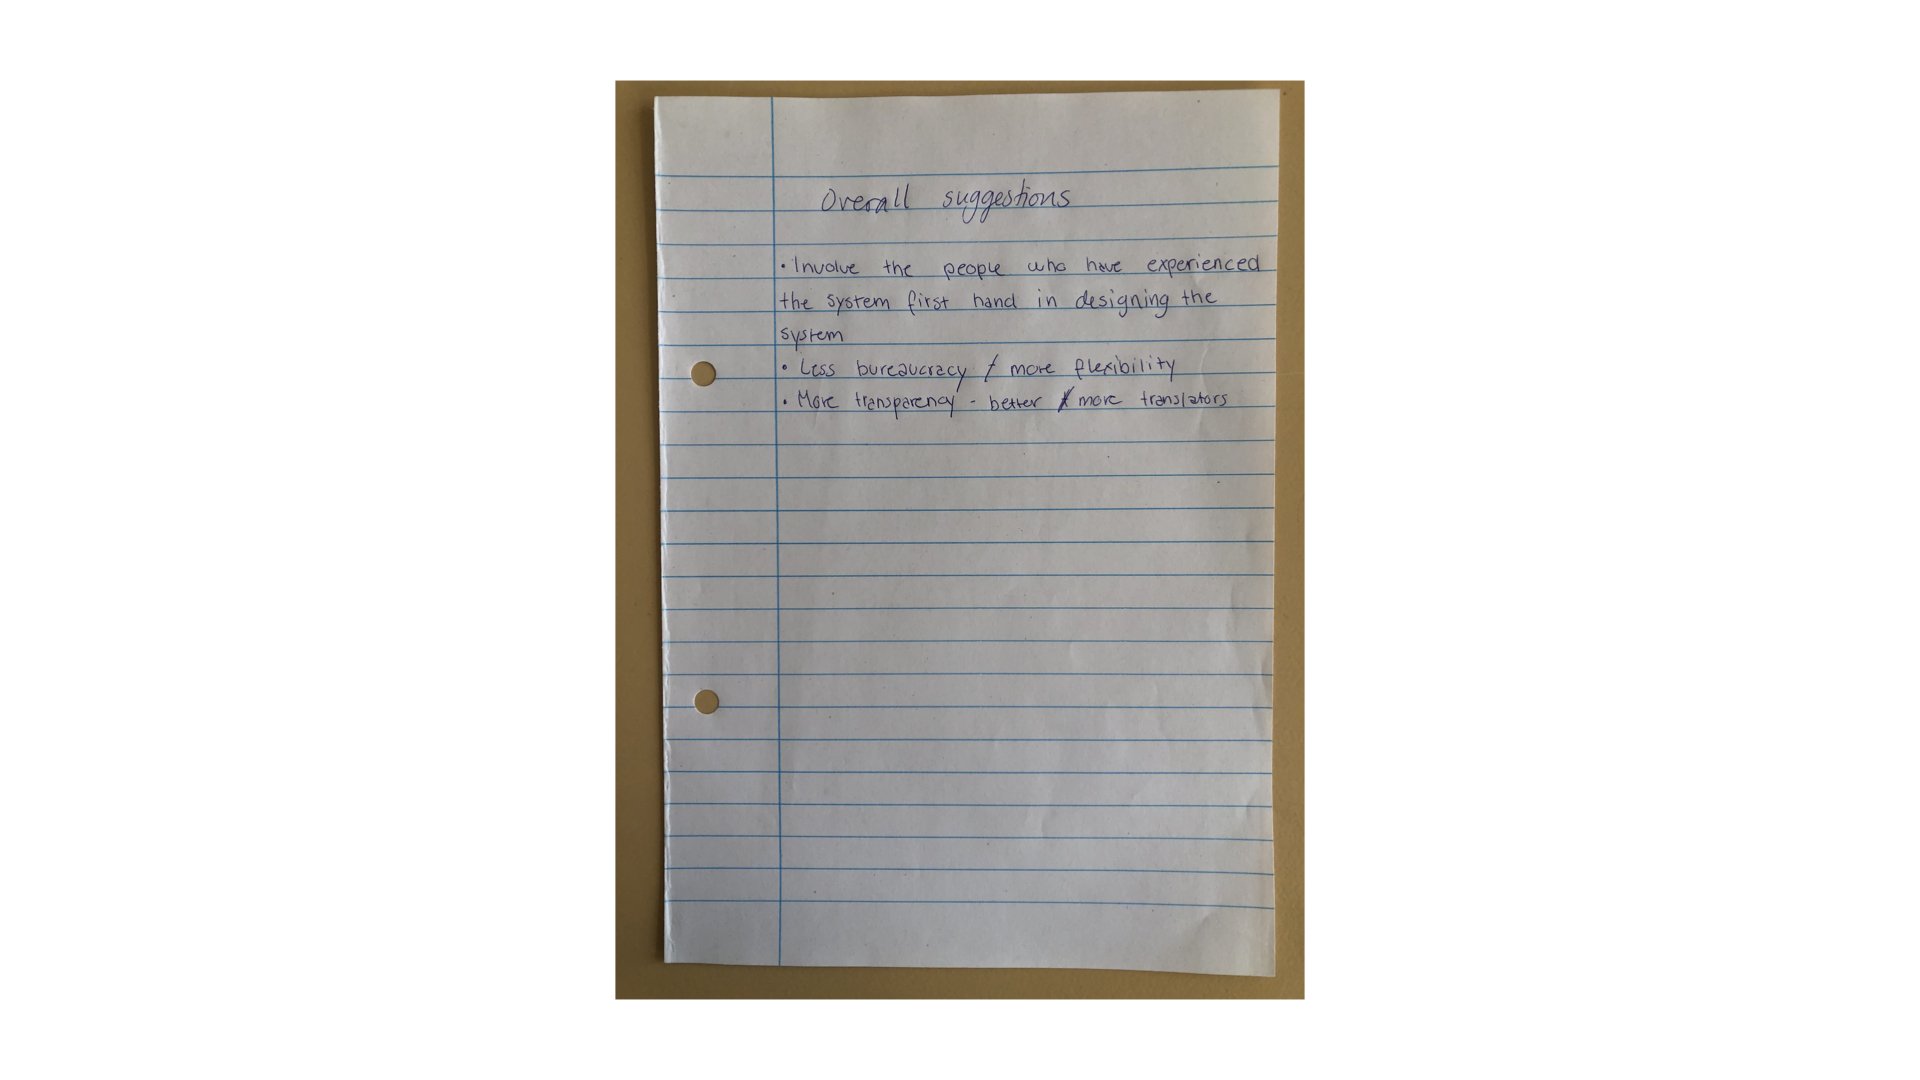 Overall suggestions
• Involve the people who have experienced
the system first hand in designing the
system
• Less bureaucracy / more flexibility
• More transparency - better / more translators